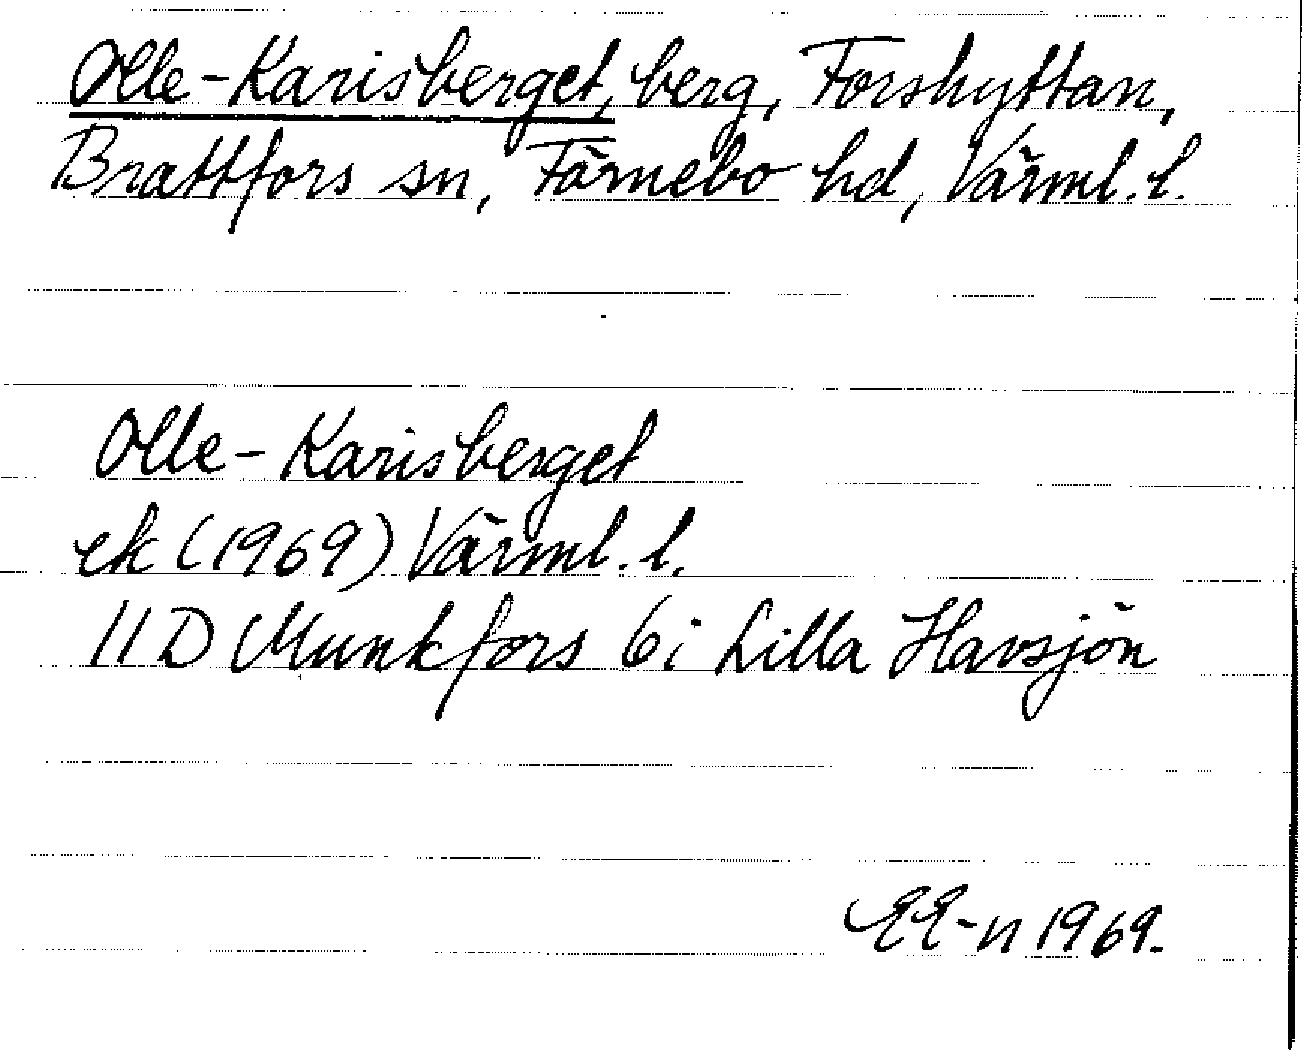 Olle-Karisberget, berg, Forshyttan,
Brattfors sn, Färnebo hd, Värml. l.
Olle-Karisberget
ek (1969) Värml. l.
11 D Munkfors 6i Lilla Havsjön
EE-n 1969.